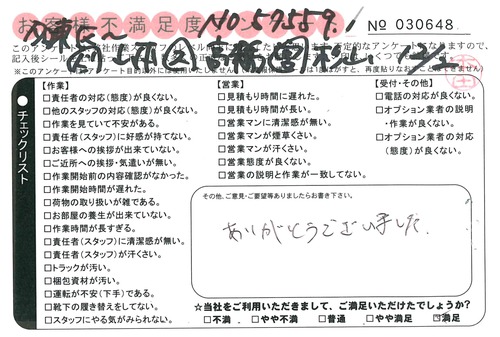 お客様不満足度
No 57559
№ 030648
このアンケートは
記入後シール
※このアンケート
チェックリスト
【作業】
□責任者の対応(態度)が良くない。
□他のスタッフの対応(態度)が良くない。
□作業を見ていて不安がある。
□責任者(スタッフ)に好感が持てない。
□お客様への挨拶が出来ていない。
□ご近所への挨拶・気遣いが無い。
□作業開始前の内容確認がなかった。
□作業開始時間が遅れた。
□荷物の取り扱いが雑である。
□お部屋の養生が出来ていない。
□作業時間が長すぎる。
□責任者(スタッフ)に清潔感が無い。
□責任者(スタッフ)が汗くさい。
□トラックが汚い。
□梱包資材が汚い。
□運転が不安(下手)である。
□靴下の履き替えをしてない。
□スタッフにやる気がみられない。
【営業】
□見積もり時間に遅れた。
□見積もり時間が長い。
□営業マンに清潔感が無い。
□営業マンが煙草くさい。
□営業マンが汗くさい。
□営業態度が良くない。
□営業の説明と作業が一致してない。
【受付・その他】
□電話の対応が良くない。
□オプション業者の説明
・作業が良くない。
□オプション業者の対応
(態度)が良くない。
その他、ご意見・ご要望等ありましたらお書き下さい。
ありがとうございました.
☆当社をご利用いただきまして、ご満足いただけたでしょうか?
□不満 □やや不満 □普通 □やや満足 ☑満足